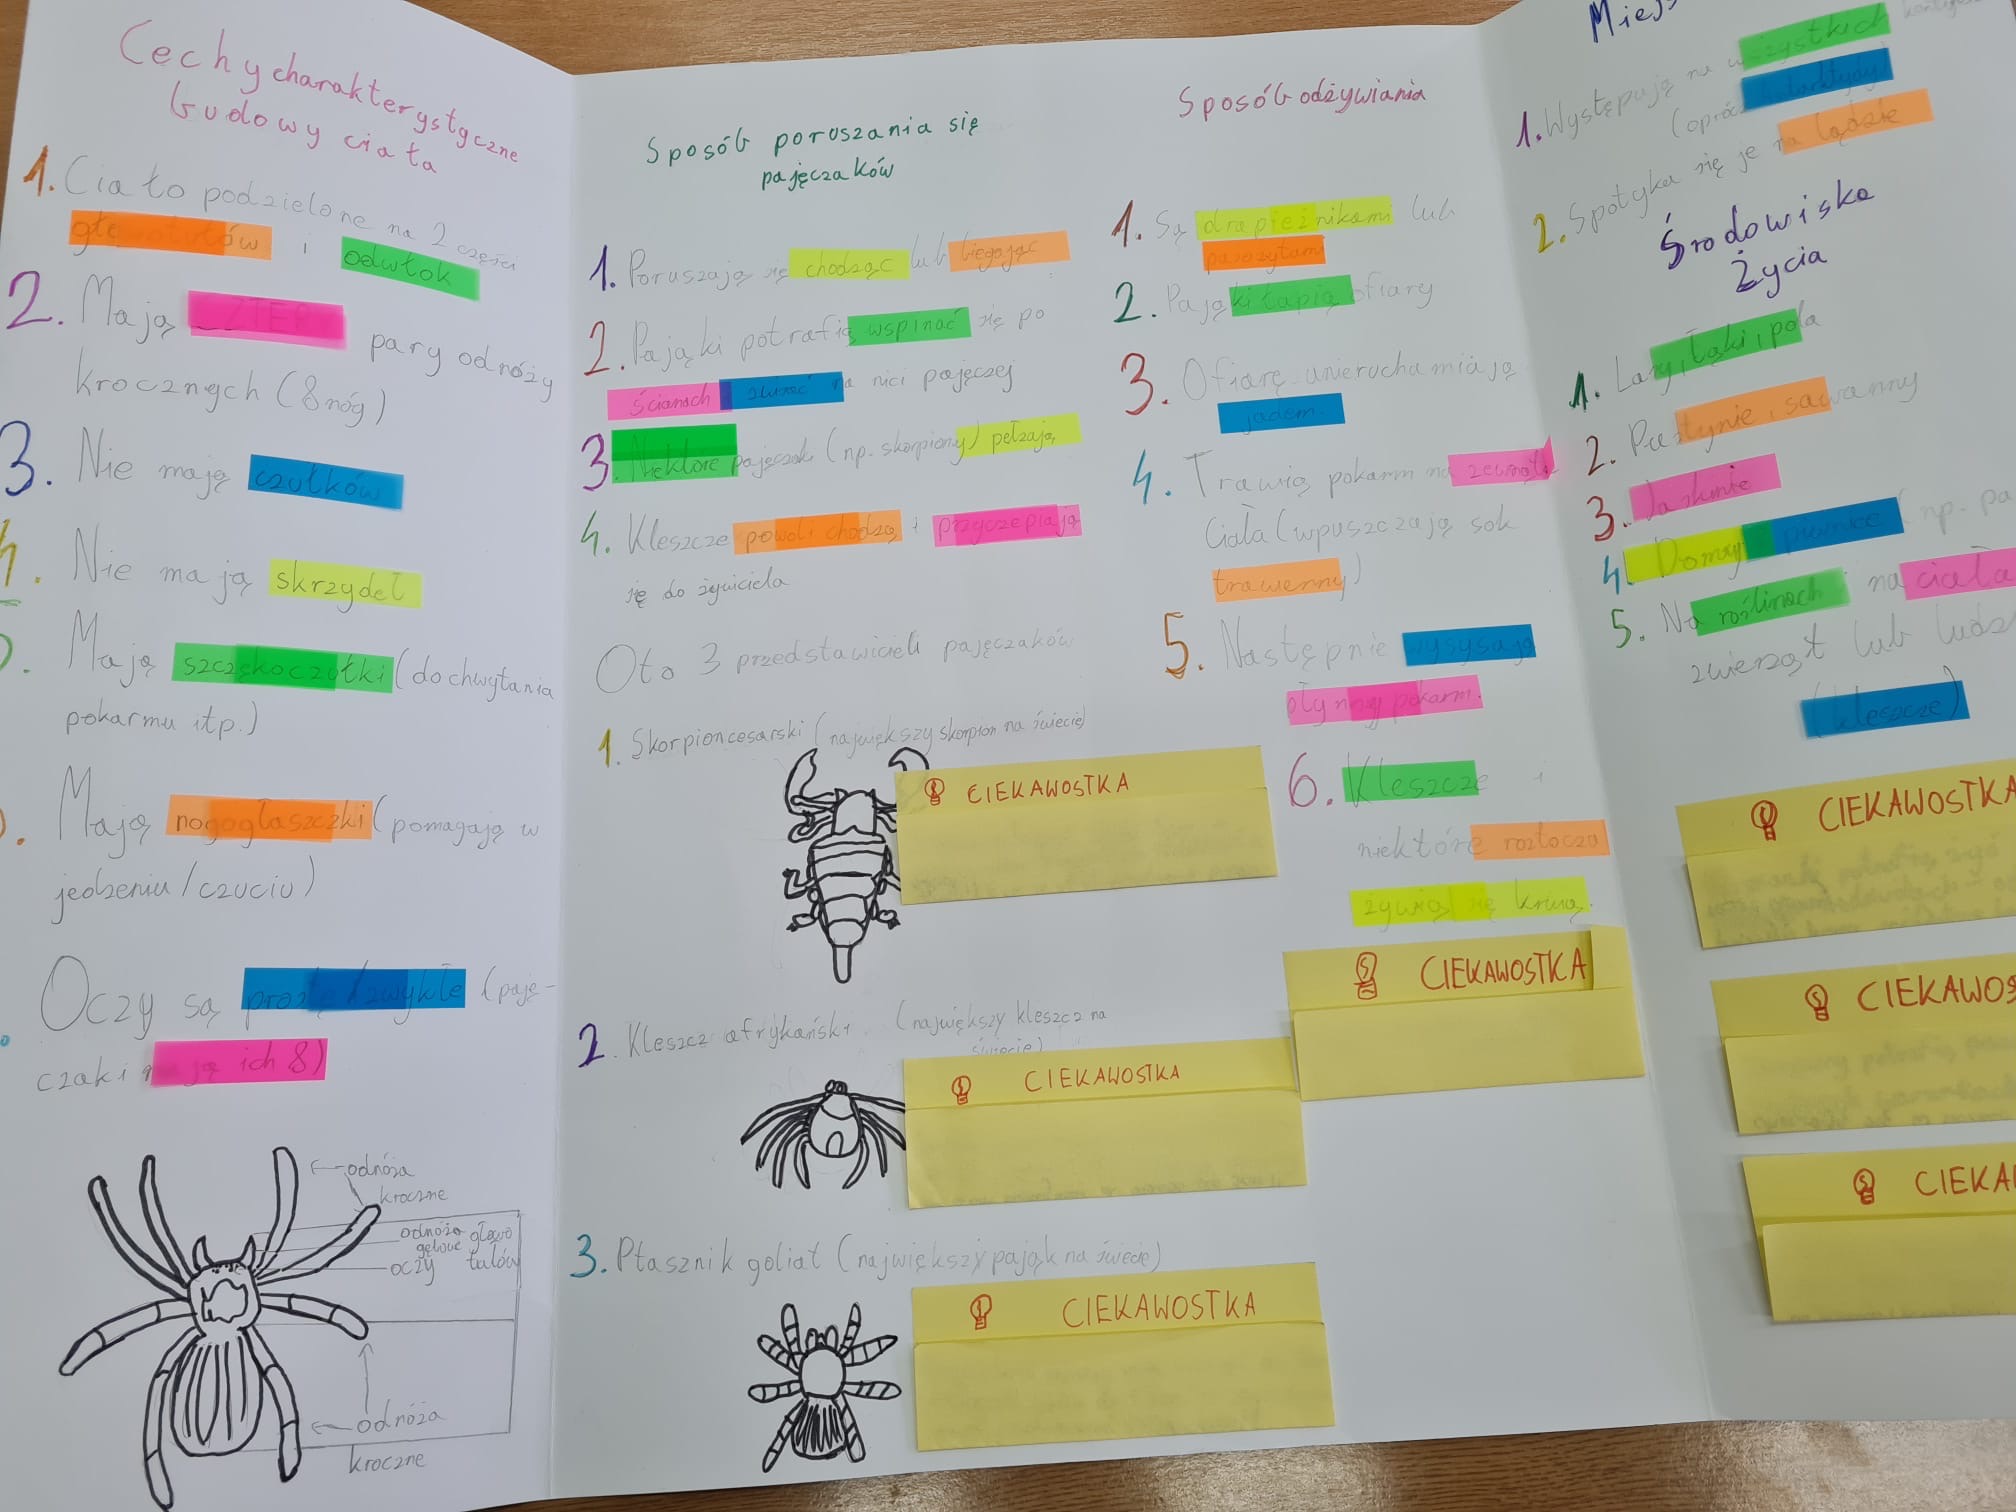 Cechy charakterystyczne
budowy ciała
1. Ciało podzielone na 2 części
głowotułów i odwłok
2. Mają CZTERY pary odnóży
krocznych (8 nóg)
3. Nie mają czułków
4. Nie mają skrzydeł
5. Mają szczękoczułki (do chwytania
pokarmu itp.)
Mają nogogłaszczki (pomagają w
jedzeniu/czuciu)
Oczy są proste/zwykłe (paję-
czaki mają ich 8)
odnóża
kroczne
odnóża głowo
gębowe tułów
oczy
odnóża
kroczne
Sposób poruszania się
pajęczaków
1. Poruszają się chodząc lub biegając
2. Pająki potrafią wspinać się po
ścianach na nici pajęczej
3. Niektóre pajęczaki (np. skorpiony) pełzają
4. Kleszcze powoli chodzą i przyczepiają
się do żywiciela
Oto 3 przedstawicieli pajęczaków
1. Skorpion cesarski (największy skorpion na świecie)
CIEKAWOSTKA
2. Kleszcz afrykański (największy kleszcz na
świecie)
CIEKAWOSTKA
3. Ptasznik goliat (największy pająk na świecie)
CIEKAWOSTKA
Sposób odżywiania
1. Są drapieżnikami lub
pasożytami
2. Pająki łapią ofiary
3. Ofiarę unieruchamiają
jadem.
4. Trawią pokarm na zewnątrz
ciała (wpuszczają sok
trawienny)
5. Następnie wysysają
płynny pokarm.
6. Kleszcze i
niektóre roztocza
żywią się krwią.
CIEKAWOSTKA
Miejs
1. Występują na wszystkich
(oprócz
2. Spotyka się je na lądzie
Środowiska
Życia
1. Lasy, łąki, pola
2. Pustynie, sawanny
3. Jaskinie
4. Domy piwnice (np. pa
5. Na roślinach i na ciała
zwierząt lub ludzi
(kleszcze)
CIEKAWOSTKA
CIEKAWOS
CIEKA